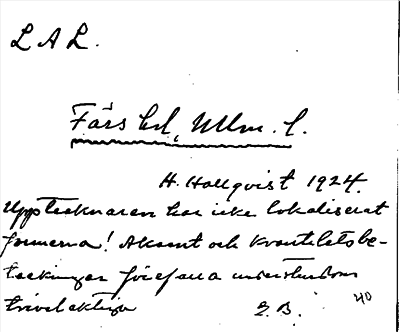 L A L.
Färs hd, Mlm. l.
H. Hallqvist 1924.
Upptecknaren har icke lokaliserat
formerna! Akcent och kvantitetsbe-
teckningar förefalla understundom
tvivelaktiga
E. B. 40